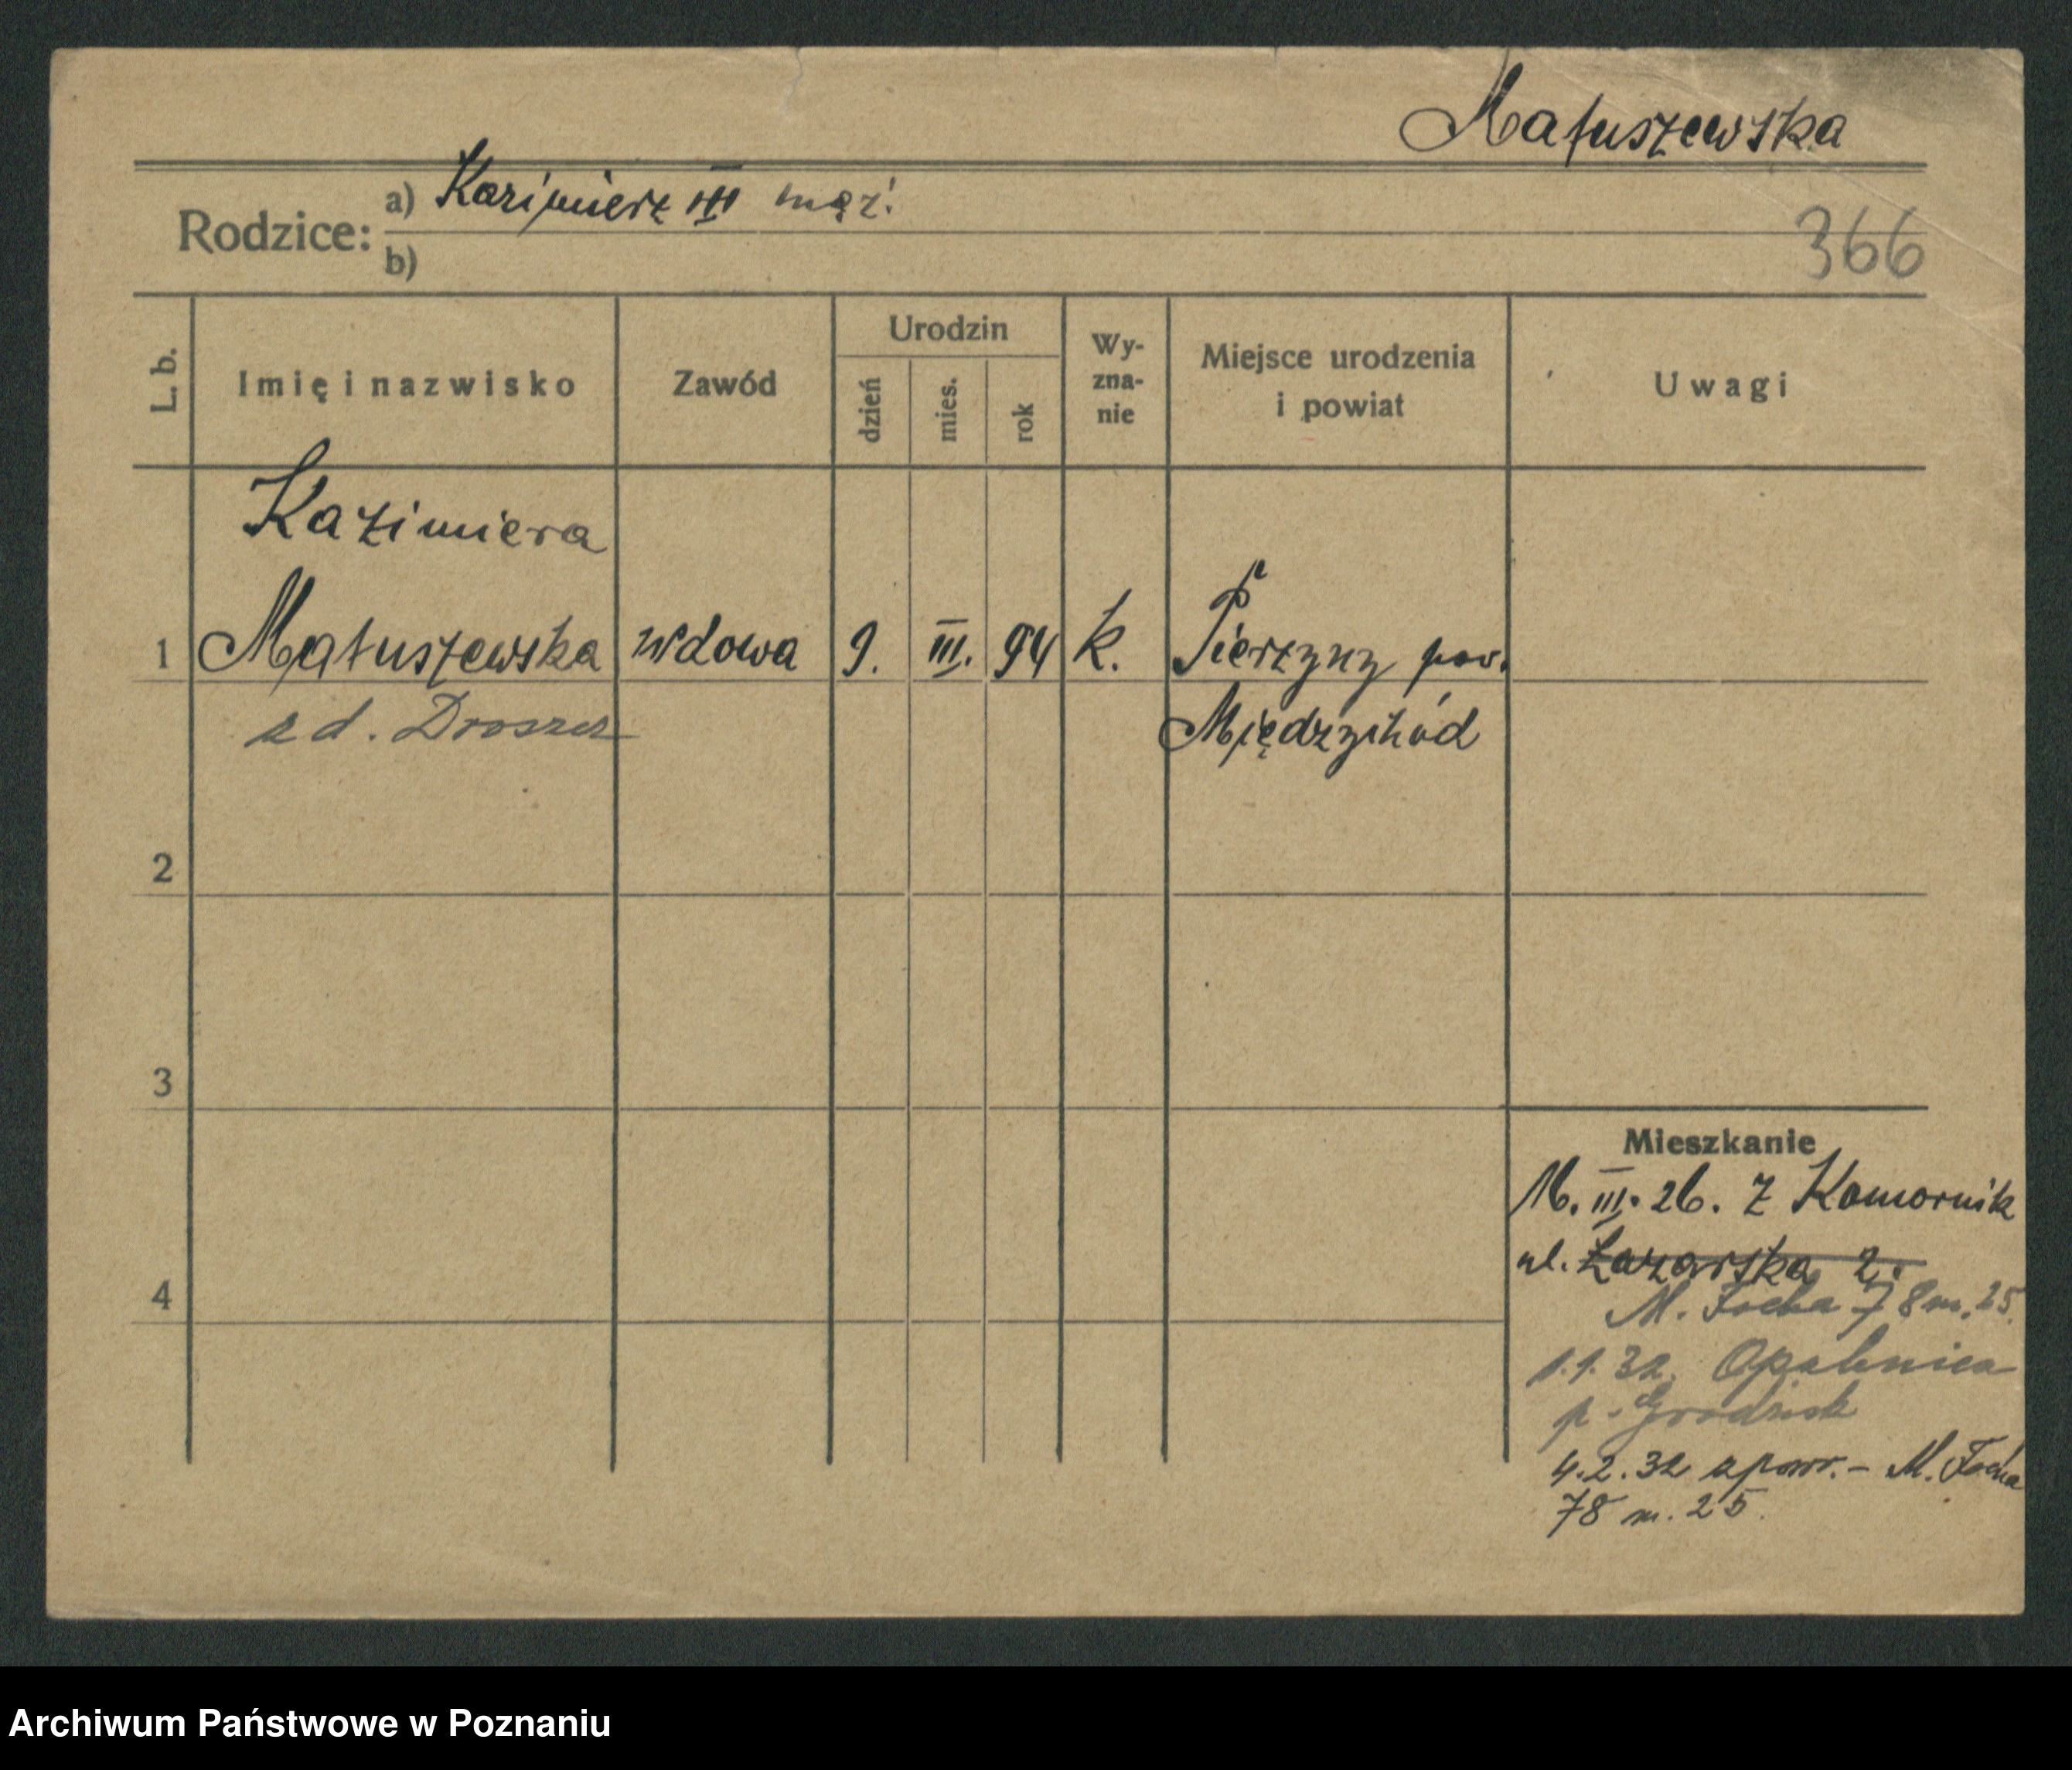 Matuszewska
Rodzice: a) Kazimierz III mąż
b)
366
L. b.
Imię i nazwisko
Zawód
Urodzin
dzień
mies.
rok
Wy-
zna-
nie
Miejsce urodzenia
i powiat
Uwagi
Kazimiera
1 Matuszewska wdowa 9. III. 94 k. Pierzyny pow.
z d. Międzychód
2
3
4
Mieszkanie
16. III. 26. z Komornik
ul. Łazarska 2.
M. Focha 78 m. 25.
1.1.32. Opalenica
p. Grodzisk
4.2.32 z powr. – M. Focha
78 m. 25.
Archiwum Państwowe w Poznaniu